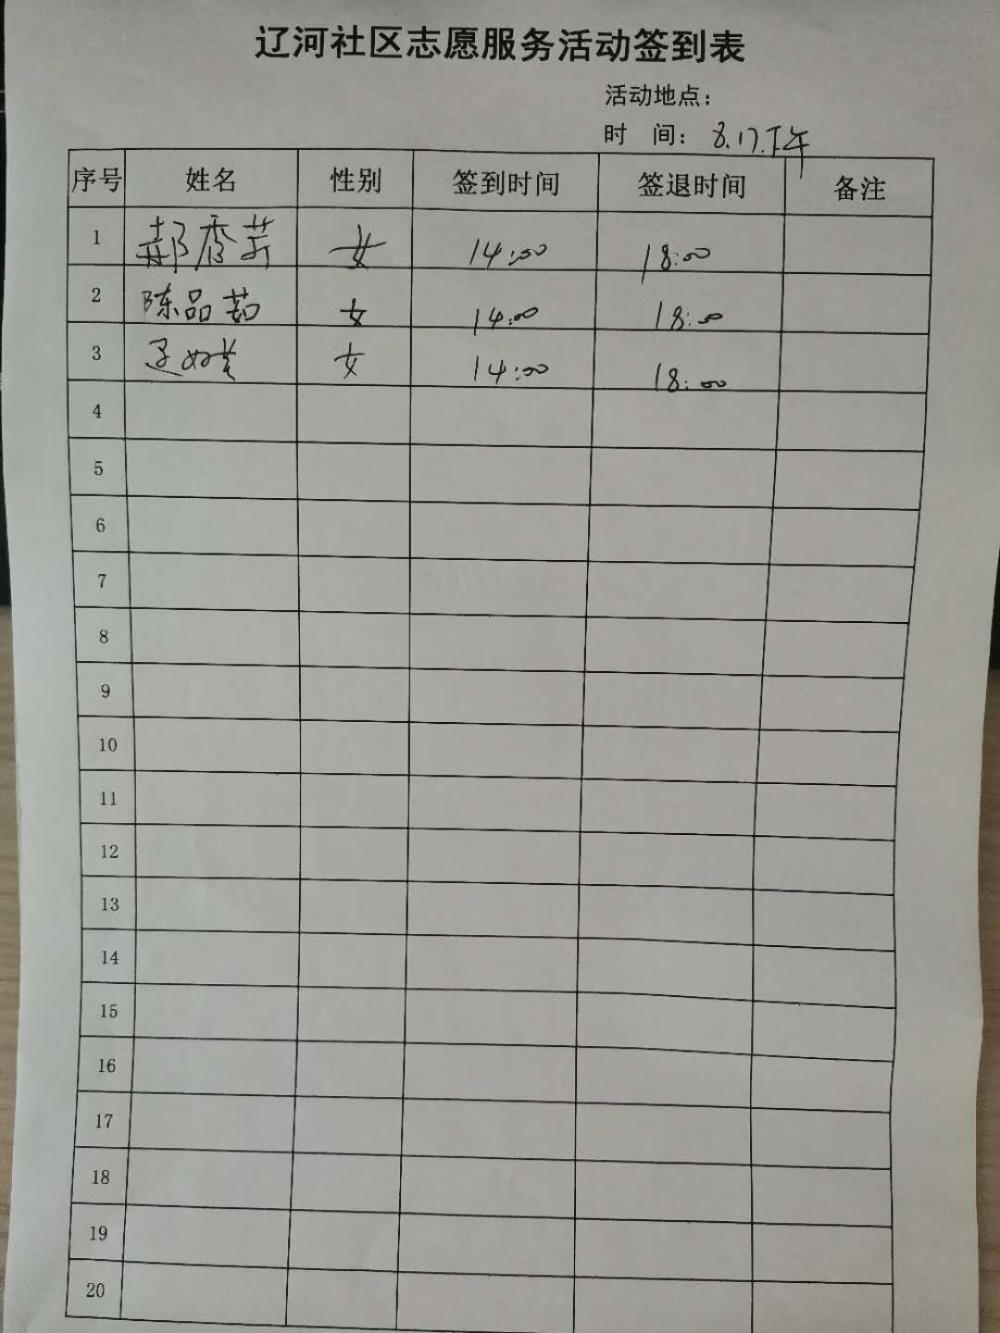 辽河社区志愿服务活动签到表
活动地点：
时 间：8.17.下午
序号 姓名 性别 签到时间 签退时间 备注
1 郝秀芹 女 14:00 18:00
2 陈品茹 女 14:00 18:00
3 女 14:00 18:00
4
5
6
7
8
9
10
11
12
13
14
15
16
17
18
19
20